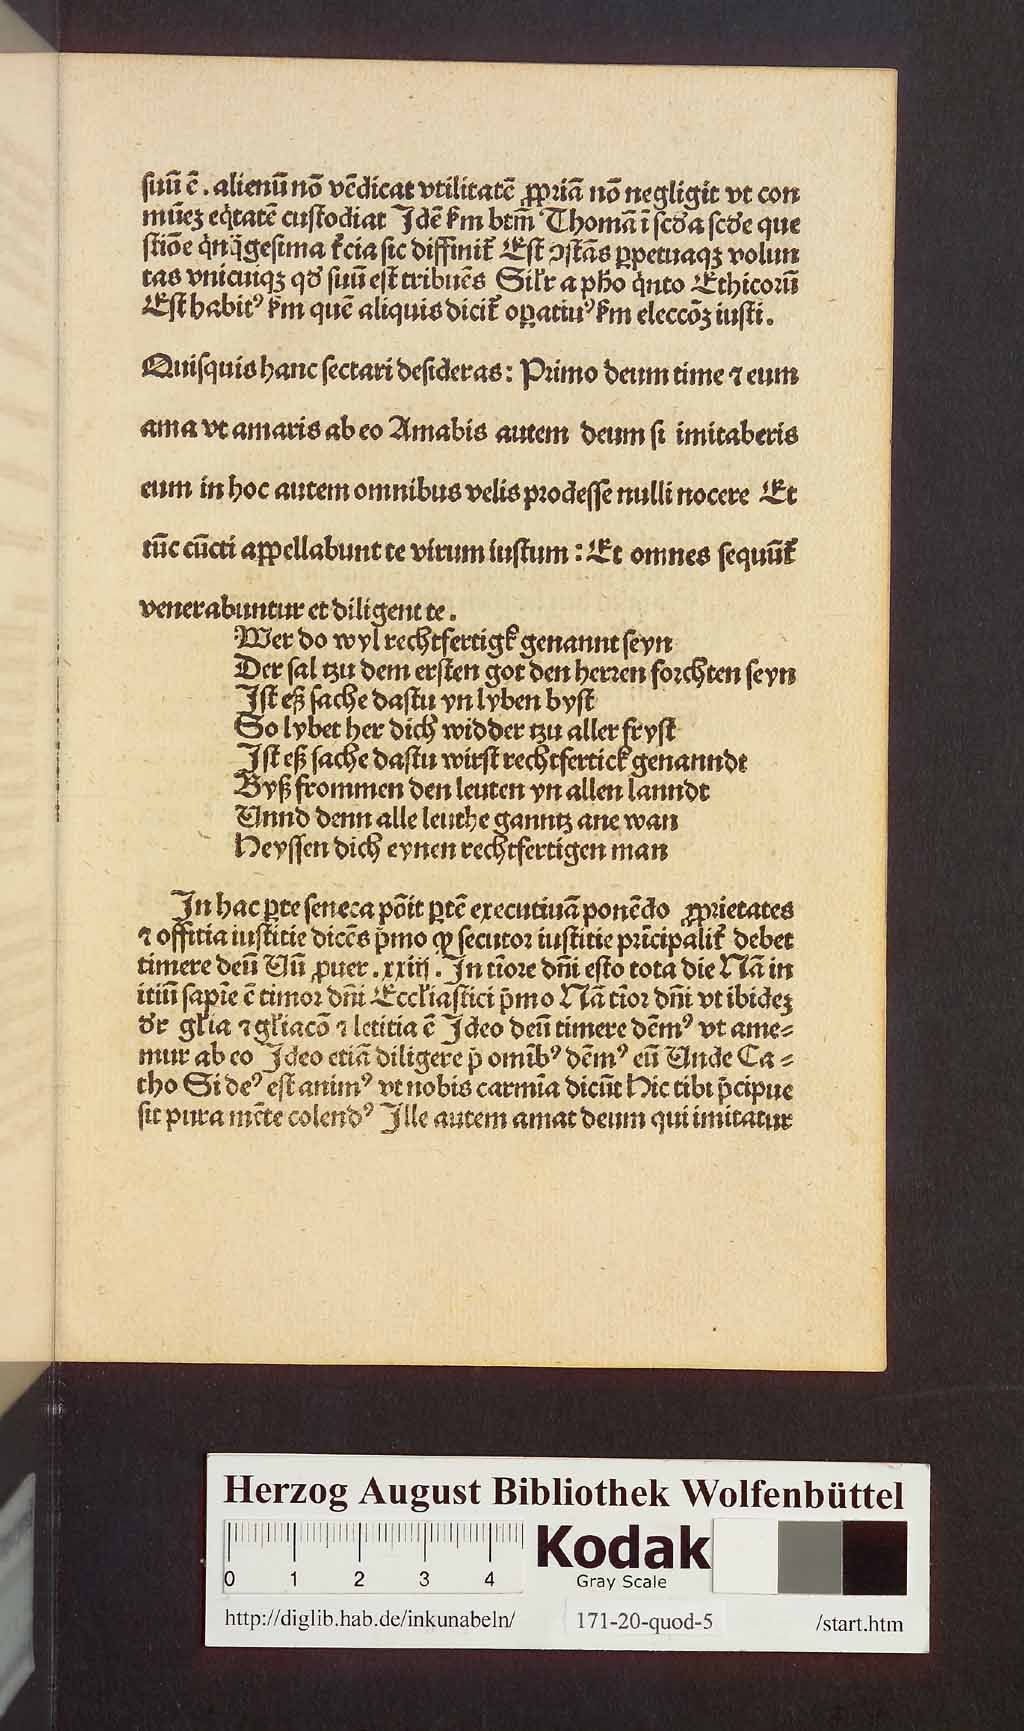 suū ē . alienū nō vēdicat vtilitatē ꝓpriā nō negligit vt con
mūeꝫ eq̇tatē custodiat Idē ẜm btm̄ Thomā ī scďa scďe que
stiōe q̇nq̄gesima t̉cia sic diffinit̉ Est ꝯstās ꝑpetuaqꝫ volun
tas vnicuiqꝫ qď suū est tribuēs Sil̉r a pho q̇nto Ethicorū
Est habitꝰ ẜm quē aliquis dicit̉ oꝑatiuꝰ ẜm eleccōꝫ iusti .
Quisquis hanc sectari desideras : Primo deum time ⁊ eum
ama vt amaris ab eo Amabis autem deum si imitaberis
eum in hoc autem omnibus velis prodesse nulli nocere Et
tūc cūcti aꝑpellabunt te virum iustum : Et omnes sequūt̉
venerabuntur et diligent te .
Wer do wyl rechtfertigk genannt seyn
Der sal tzu dem ersten got den herren forchten seyn
Ist eß sache dastu yn lyben byst
So lybet her dich widder tzu aller fryst
Ist eß sache dastu wirst rechtfertick genanndt
Byß frommen den leuten yn allen lanndt
Unnd denn alle leuthe ganntz ane wan
Heyssen dich eynen rechtfertigen man
In hac ꝑte seneca pōit ꝑtē executiuā ponēdo ꝓprietates
⁊ offitia iustitie dicēs p̄mo ꝙ secutor iustitie prīcipalit̉ debet
timere deū Uū ꝓuer . xxiij . In tiōre dn̄i esto tota die Nā in
itiū sapīe ē timor dn̄i Eccl̉iastici p̄mo Nā tīor dn̄i vt ibideꝫ
ďr gl̉ia ⁊ gl̉iacō ⁊ letitia ē Ideo deū timere dēmꝰ vt ame⸗
mur ab eo Ideo etiā diligere p̄ omībꝰ dēmꝰ eū Unde Ca⸗
tho Si deꝰ est animꝰ vt nobis carmīa dicūt Hic tibi p̄cipue
sit pura mēte colendꝰ Ille autem amat deum qui imitatur
Herzog August Bibliothek Wolfenbüttel
0 1 2 3 4
Kodak
Gray Scale
http://diglib.hab.de/inkunabeln/ 171-20-quod-5 /start.htm